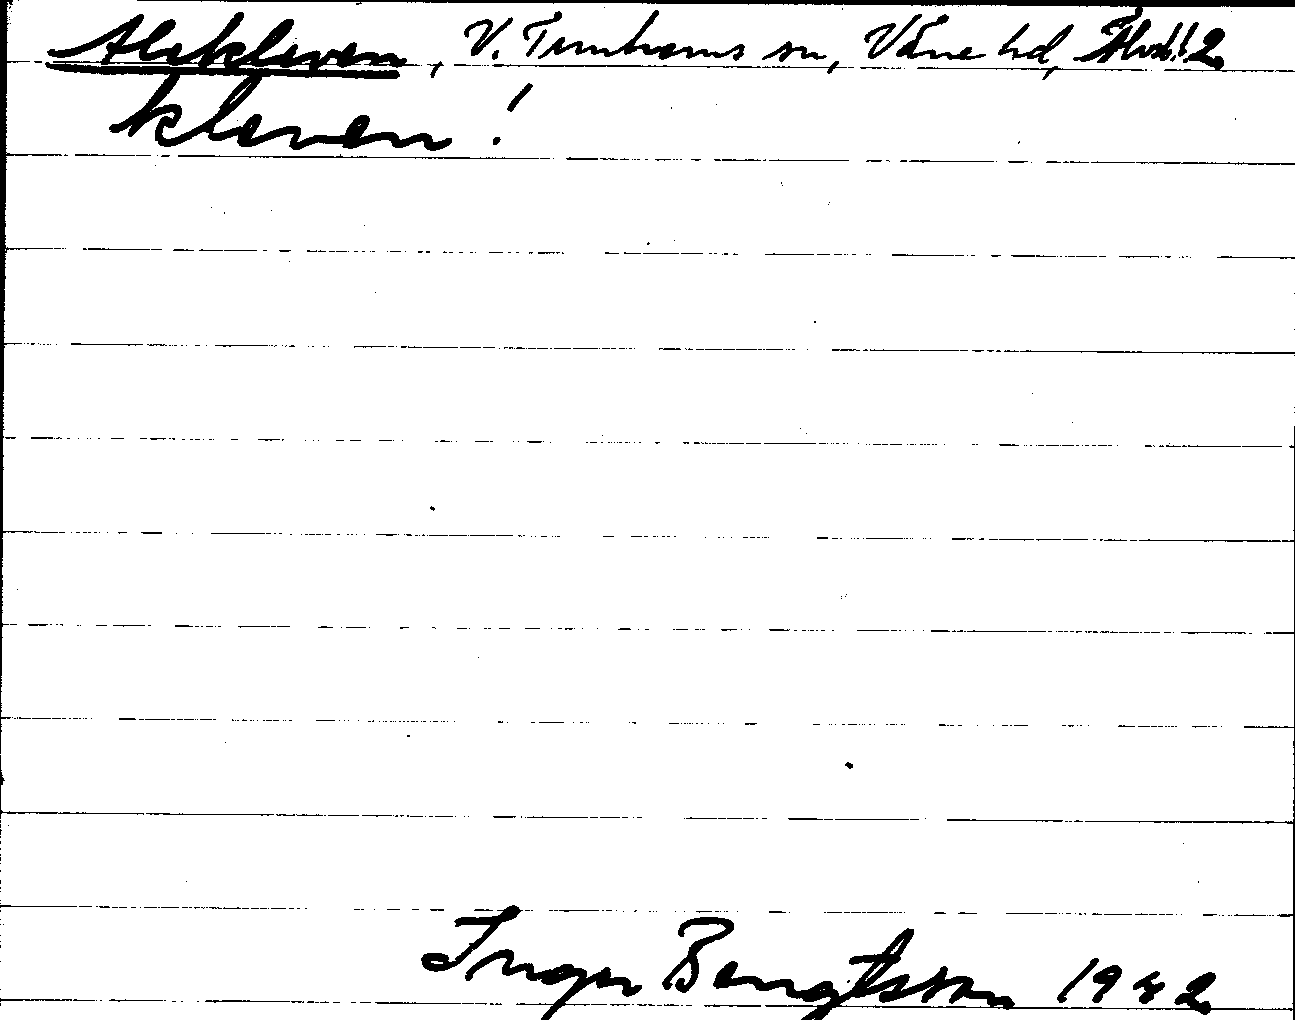 Alekleven, V. Tunhems sn, Väne hd, Älvsb. l. 2
kleven!
Inger Bengtsson 1942